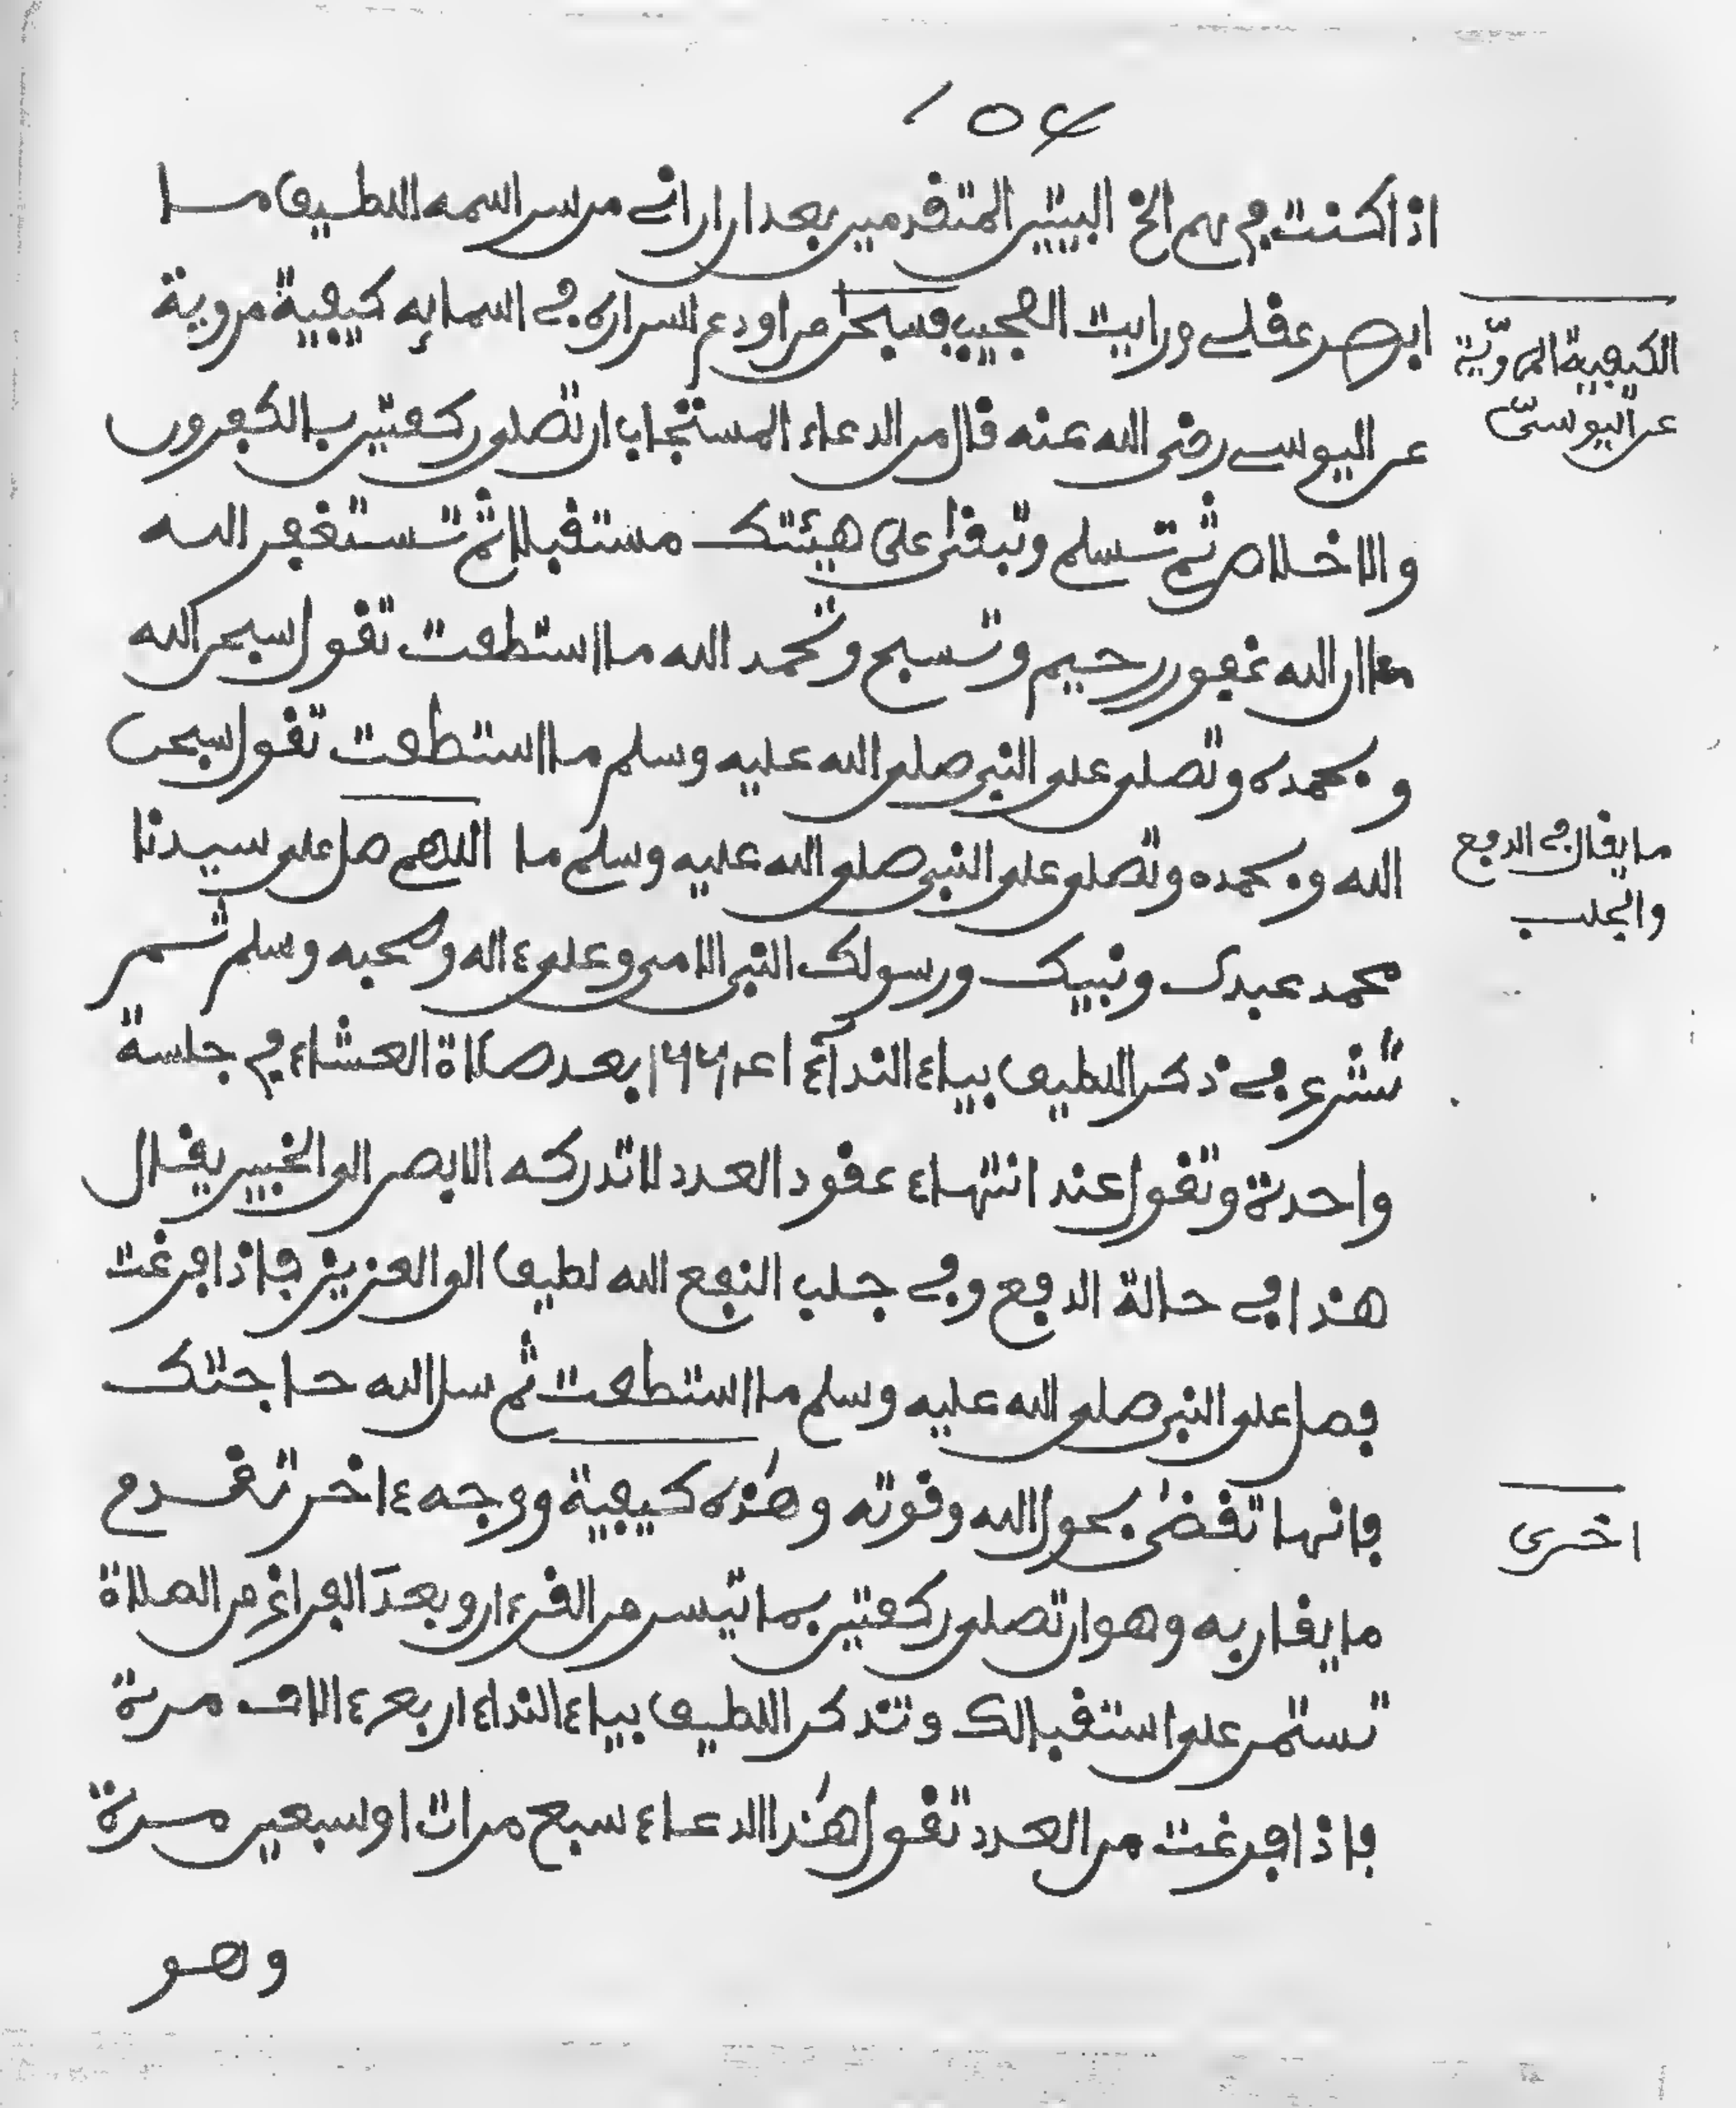 اذا كنت في هم الخ البيتين المتقدمين بعد ان اراني من سر اسمه اللطيف ما
ابهر عقلي ورايت العجيب فسبحن من اودع اسراره في اسمايه كيفية مروية
الكيفية المروّية
عن اليوسيّ
عن اليوسي رضي الله عنه قال من الدعاء المستجاب ان تصلي ركعتين بالكفرون
والاخلاص ثم تسلم وتبقى على هيئتك مستقبلا ثم تستغفر الله
ان الله غفور رحيم وتسبح وتحمد الله ما استطعت تقول سبحن الله
وبحمده وتصلي على النبي صلى الله عليه وسلم ما استطعت تقول سبحن
الله وبحمده وتصلي على النبي صلى الله عليه وسلم ما اللهم صل على سيدنا
ما يقال في الدفع
والجلب
محمد عبدك ونبيك ورسولك النبي الامي وعلى ءاله وصحبه وسلم ثم
تشرع في ذكر اللطيف بياء النداء بعد صلاة العشاء في جلسة
واحدة وتقول عند انتهاء عقود العدد لا تدركه الابصر الى الخبير يقال
هذا في حالة الدفع وفي جلب النفع الله لطيف الى العزيز فاذا فرغت
فصل على النبي صلى الله عليه وسلم ما استطعت ثم سل الله حاجتك
فانها تقضى بحول الله وقوته وهذه كيفية ووجه ءاخر تقدم
اخرى
ما يقاربه وهو ان تصلي ركعتين بما تيسر من القرءان وبعد الفراغ من الصلاة
تستمر على استقبالك وتذكر اللطيف بياء النداء اربع ءالاف مرة
فاذا فرغت من العدد تقول هذا الدعاء سبع مرات او سبعين مرة
وهو